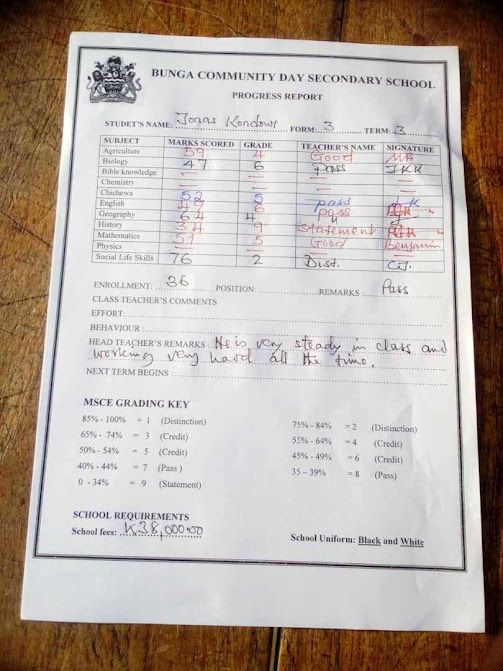 BUNGA COMMUNITY DAY SECONDARY SCHOOL
PROGRESS REPORT
STUDET'S NAME: Jonas Kondowe FORM: 3 TERM: 3
SUBJECT MARKS SCORED GRADE TEACHER'S NAME SIGNATURE
Agriculture 59 4 Good
Biology 47 6 Pass JKK
Bible knowledge — — — —
Chemistry — — — —
Chichewa 52 5 pass K
English 6 pass
Geography 64 4 "
History 34 9 Statement "
Mathematics 51 5 Good Benjamin
Physics — — — —
Social Life Skills 76 2 Dist.
ENROLLMENT: 36 POSITION: REMARKS Pass
CLASS TEACHER'S COMMENTS
EFFORT:
BEHAVIOUR :
HEAD TEACHER'S REMARKS : He is very steady in class and
working very hard all the time.
NEXT TERM BEGINS :
MSCE GRADING KEY
85% - 100% = 1 (Distinction) 75% - 84% = 2 (Distinction)
65% - 74% = 3 (Credit) 55% - 64% = 4 (Credit)
50% - 54% = 5 (Credit) 45% - 49% = 6 (Credit)
40% - 44% = 7 (Pass ) 35 – 39% = 8 (Pass)
0 - 34% = 9 (Statement)
SCHOOL REQUIREMENTS
School fees: K38,000.00 School Uniform: Black and White